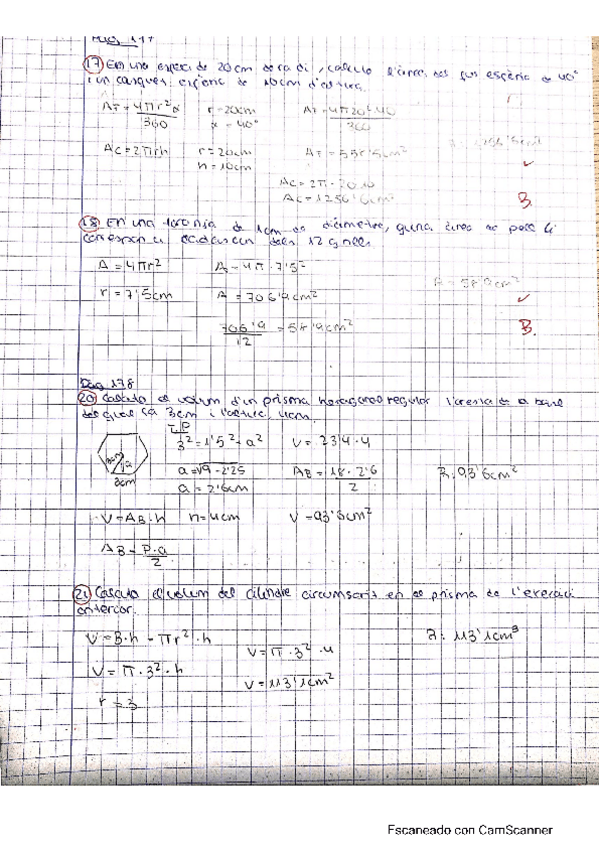 Pag. 177
17 En una esfera de 20cm de radi, calcula l'àrea del fus esfèric de 40°
i un casquet esfèric de 10cm d'altura.
AF = 4πr²α / 360 r = 20cm α = 40° AF = 4π20²·40 / 360
AC = 2πrh r = 20cm h = 10cm AF = 558'5cm²
AC = 2π·20·10
AC = 1256'6cm² B.
18 En una taronja de diàmetre, quina àrea de pell li
correspon a cadascun dels 12 grills
A = 4πr² A = 4π·7'5²
r = 7'5cm A = 706'9cm²
706'9 / 12 = 58'9cm² B.
Pag. 178
20 Calcula el volum d'un prisma hexagonal regular l'aresta de la base
del qual fa 3cm i l'altura, 4cm.
T.P
3² = 1'5² + a² V = 23'4·4
a = √9-2'25 AB = 18·2'6 / 2 R: 93'6cm²
3cm a = 2'6cm
V = AB·h h = 4cm V = 93'6cm²
AB = P·a / 2
21 Calcula el volum del cilindre circumscrit en el prisma de l'exercici
anterior.
V = B·h = πr²·h R: 113'1cm³
V = π·3²·4
V = π·3²·h
V = 113'1cm²
r = 3
Escaneado con CamScanner